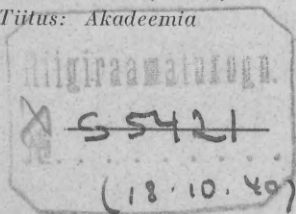 Tiitus: Akadeemia
Riigiraamatukogu.
S 5421
(18.10.40)